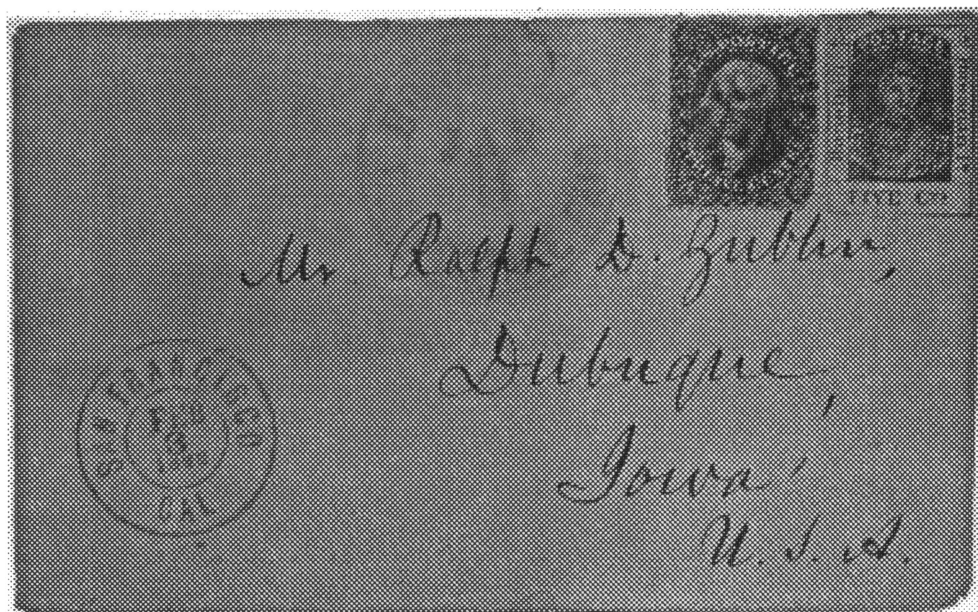 FIVE
Mr. Ralph D. Zublin,
Dubuque,
Iowa
U. S. A.
SAN FRANCISCO
CAL